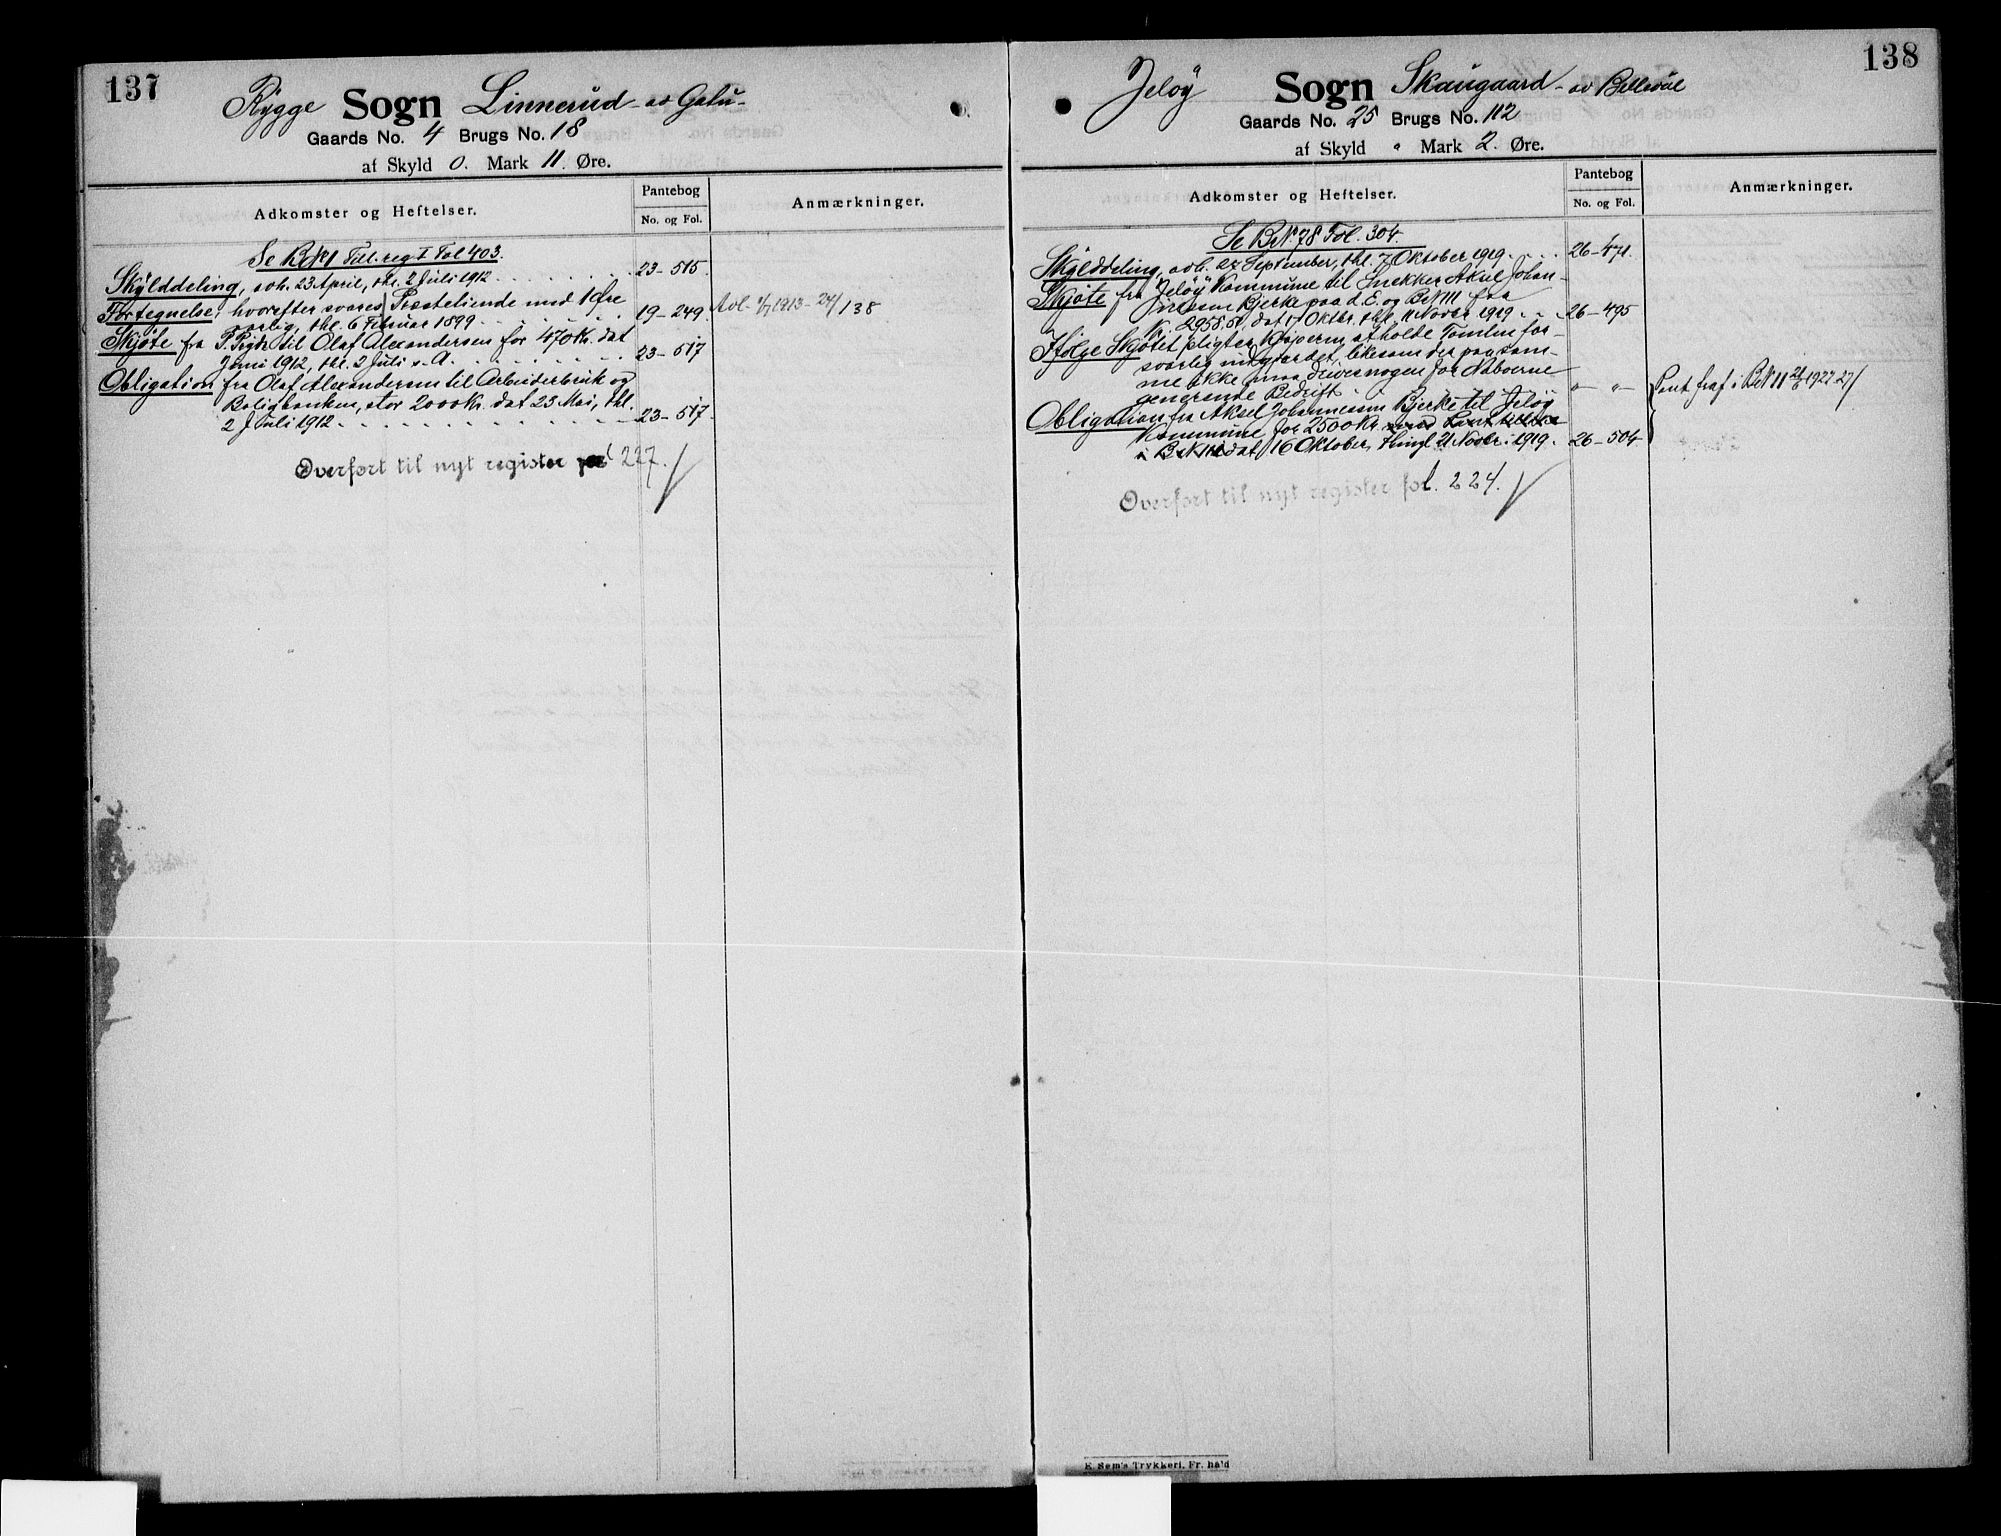 137
Rygge Sogn Linnerud av Galu-
Gaards No. 4 Brugs No. 18
af Skyld 0. Mark 11. Øre.
Adkomster og Heftelser.
Pantebog
No. og Fol.
Anmærkninger.
Se BrN 1 Till. reg I Fol 403.
Skylddeling, avh. 23 April, thl. 2 Juli 1912 23-515.
Fortegnelse, hvorefter svares Præstetiende med 1 Øre
aarlig, thl. 6 Februar 1899 19-249. Avl. 1/7 1913-24/138
Skjøte fra P. Ryh til Olaf Alexandersen for 470 Kr. dat
Juni 1912, thl. 2 Juli s. A. 23-517
Obligation fra Olaf Alexandersen til Arbeiderbruk og
Boligbanken, stor 2000 Kr. dat 23 Mai, thl.
2 Juli 1912 23-517.
Overført til nyt register fol 227.
138
Jeløy Sogn Skaugaard - av Bellevue
Gaards No. 25 Brugs No. 112
af Skyld " Mark 2. Øre.
Adkomster og Heftelser.
Pantebog
No. og Fol.
Anmærkninger.
Se BrN. 78 Fol. 304.
Skylddeling, avh. 27 September, thl. 7 Oktober 1919 26-471.
Skjøte fra Jeløy Kommune til Snekker Aksel Johan-
nessen Bjerke paa d. E. og BrN 111 for
Kr. 2958.50, dat 17 Oktbr. thl. 11 Novbr 1919 26-495
Ifølge Skjøtet pligter Kjøperen at holde Tomten for-
svarlig indgjærdet, likesom der paa sam-
me ikke maa drives nogen for Naboerne
generende Bedrift " - "
Obligation fra Aksel Johannessen Bjerke til Jeløy
Kommune for 2500 Kr. med Pant tillike
i BrN 111 dat 16 Oktober, thingl 21 Novbr. 1919. 26-504
Pant fraf. i BrN 11 1927 27/
Overført til nyt register fol. 224.
E. Sem's Trykkeri, Fr.hald